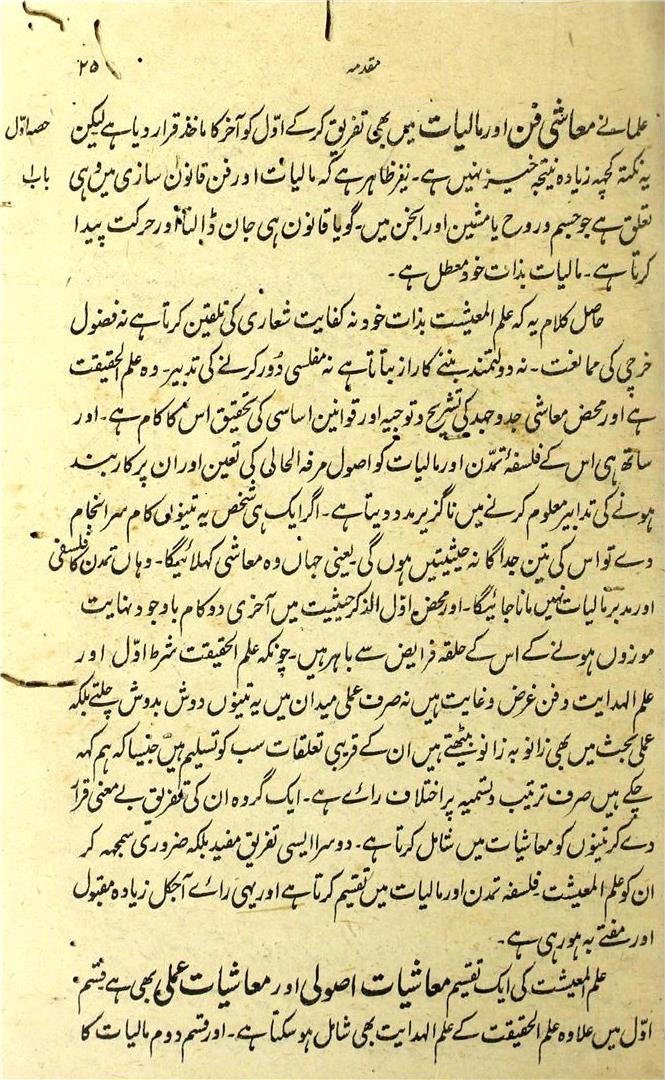 مقدمہ
۲۵
حصہ اوّل
باب ۱
علمائے معاشی فن اور مالیات میں بھی تفریق کرکے اوّل کو آخر کا ماخذ قرار دیا ہے لیکن
یہ نکتہ کچھہ زیادہ نتیجہ خیز نہیں ہے۔ نیز ظاہر ہے کہ مالیات اور فن قانون سازی میں وہی
تعلق ہے جو جسم و روح یا مشین اور انجن میں۔ گویا قانون ہی جان ڈالتا اور حرکت پیدا
کرتا ہے۔ مالیات بذات خود معطل ہے۔
حاصل کلام یہ کہ علم المعیشت بذات خود نہ کفایت شعاری کی تلقین کرتا ہے نہ فضول
خرچی کی ممانعت۔ نہ دولتمند بننے کا راز بتاتا ہے نہ مفلسی دُور کرنے کی تدبیر۔ وہ علم الحقیقت
ہے اور محض معاشی جدوجہد کی تشریح و توجیہ اور قوانین اساسی کی تحقیق اس کا کام ہے۔ اور
ساتھ ہی اس کے فلسفۂ تمدّن اور مالیات کو اصول مرفہ الحالی کی تعین اور ان پر کاربند
ہونے کی تدابیر معلوم کرنے میں ناگزیر مدد دیتا ہے۔ اگر ایک ہی شخص یہ تینوں کام سرانجام
دے تو اس کی تین جداگانہ حیثیتیں ہوں گی یعنی جہاں وہ معاشی کہلائیگا۔ وہاں تمدن کا فلسفی
اور مدبر مالیات نہیں مانا جائیگا۔ اور محض اوّل الذکر حیثیت میں آخری دو کام باوجود نہایت
موزوں ہونے کے اس کے حلقہ فرایض سے باہر ہیں۔ چونکہ علم الحقیقت شرط اوّل اور
علم الہدایت و فن غرض و غایت ہیں نہ صرف عملی میدان میں یہ تینوں دوش بدوش چلتے بلکہ
عملی بحث میں بھی زانو بہ زانو بیٹھتے ہیں ان کے قریبی تعلقات سب کو تسلیم ہیں جیسا کہ ہم کہہ
چکے ہیں صرف ترتیب و تسمیہ پر اختلاف رائے ہے۔ ایک گروہ ان کی تفریق بے معنی قرار
دے کر تینوں کو معاشیات میں شامل کرتا ہے۔ دوسرا ایسی تفریق مفید بلکہ ضروری سمجھہ کر
ان کو علم المعیشت۔ فلسفہ تمدن اور مالیات میں تقسیم کرتا ہے اور یہی رائے آجکل زیادہ مقبول
اور مفتے بہ ہو رہی ہے۔
علم المعیشت کی ایک تقسیم معاشیات اصولی اور معاشیات عملی بھی ہے قسم
اوّل میں علاوہ علم الحقیقت کے علم الہدایت بھی شامل ہو سکتا ہے۔ اور قسم دوم مالیات کا